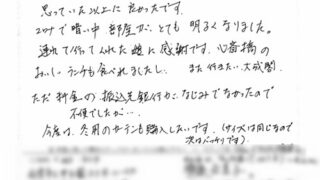 思っていた以上に良かったです。
コロナで暗い中 部屋が、とても 明るくなりました。
連れて行ってくれた娘に感謝です。心斎橋の
おいしいランチも食べれましたし、また行きたい。大成閣
ただ料金の振込先銀行がなじみでなかったので
不便でしたが…
今度は、冬用のカーテンも購入したいです。(サイズは同じなので
次はバッチリです)